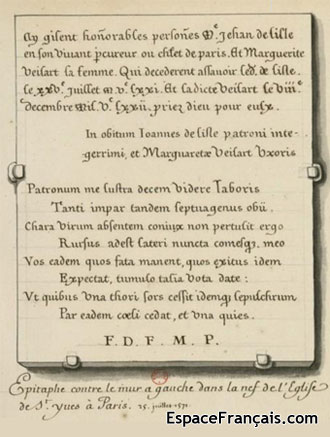 Cy gisent honnorables personnes Mᵉ Jehan de lisle
en son vivant pcureur ou chlet de paris. Et Marguerite
Veilart sa femme. Qui decederent assauoir led. de lisle.
le xxvᵉ. Juillet m vᶜ. lxxi. Et ladicte Veilart le viiiᵉ.
decembre mil. vᶜ. lxxii. priez dieu pour eulx.
In obitum Ioannes de lisle patroni inte-
gerrimi, et Margaretæ Veilart Vxoris
Patronum me lustra decem videre laboris
Tanti impar tandem septuagenus obii.
Chara virum absentem coniux non pertulit ergo
Rursus adest fateri nuncta comesq; meo
Vos eadem quos fata manent, quos exitus idem
Expectat, tumulo talia vota date:
Vt quibus vna thori sors cessit idemq; sepulchrum
Par eadem cœli cedat, et vna quies.
F. D. F. M. P.
Epitaphe contre le mur a gauche dans la nef de l'Eglise
de St. yves à Paris. 25. juillet 1571.
EspaceFrançais.com